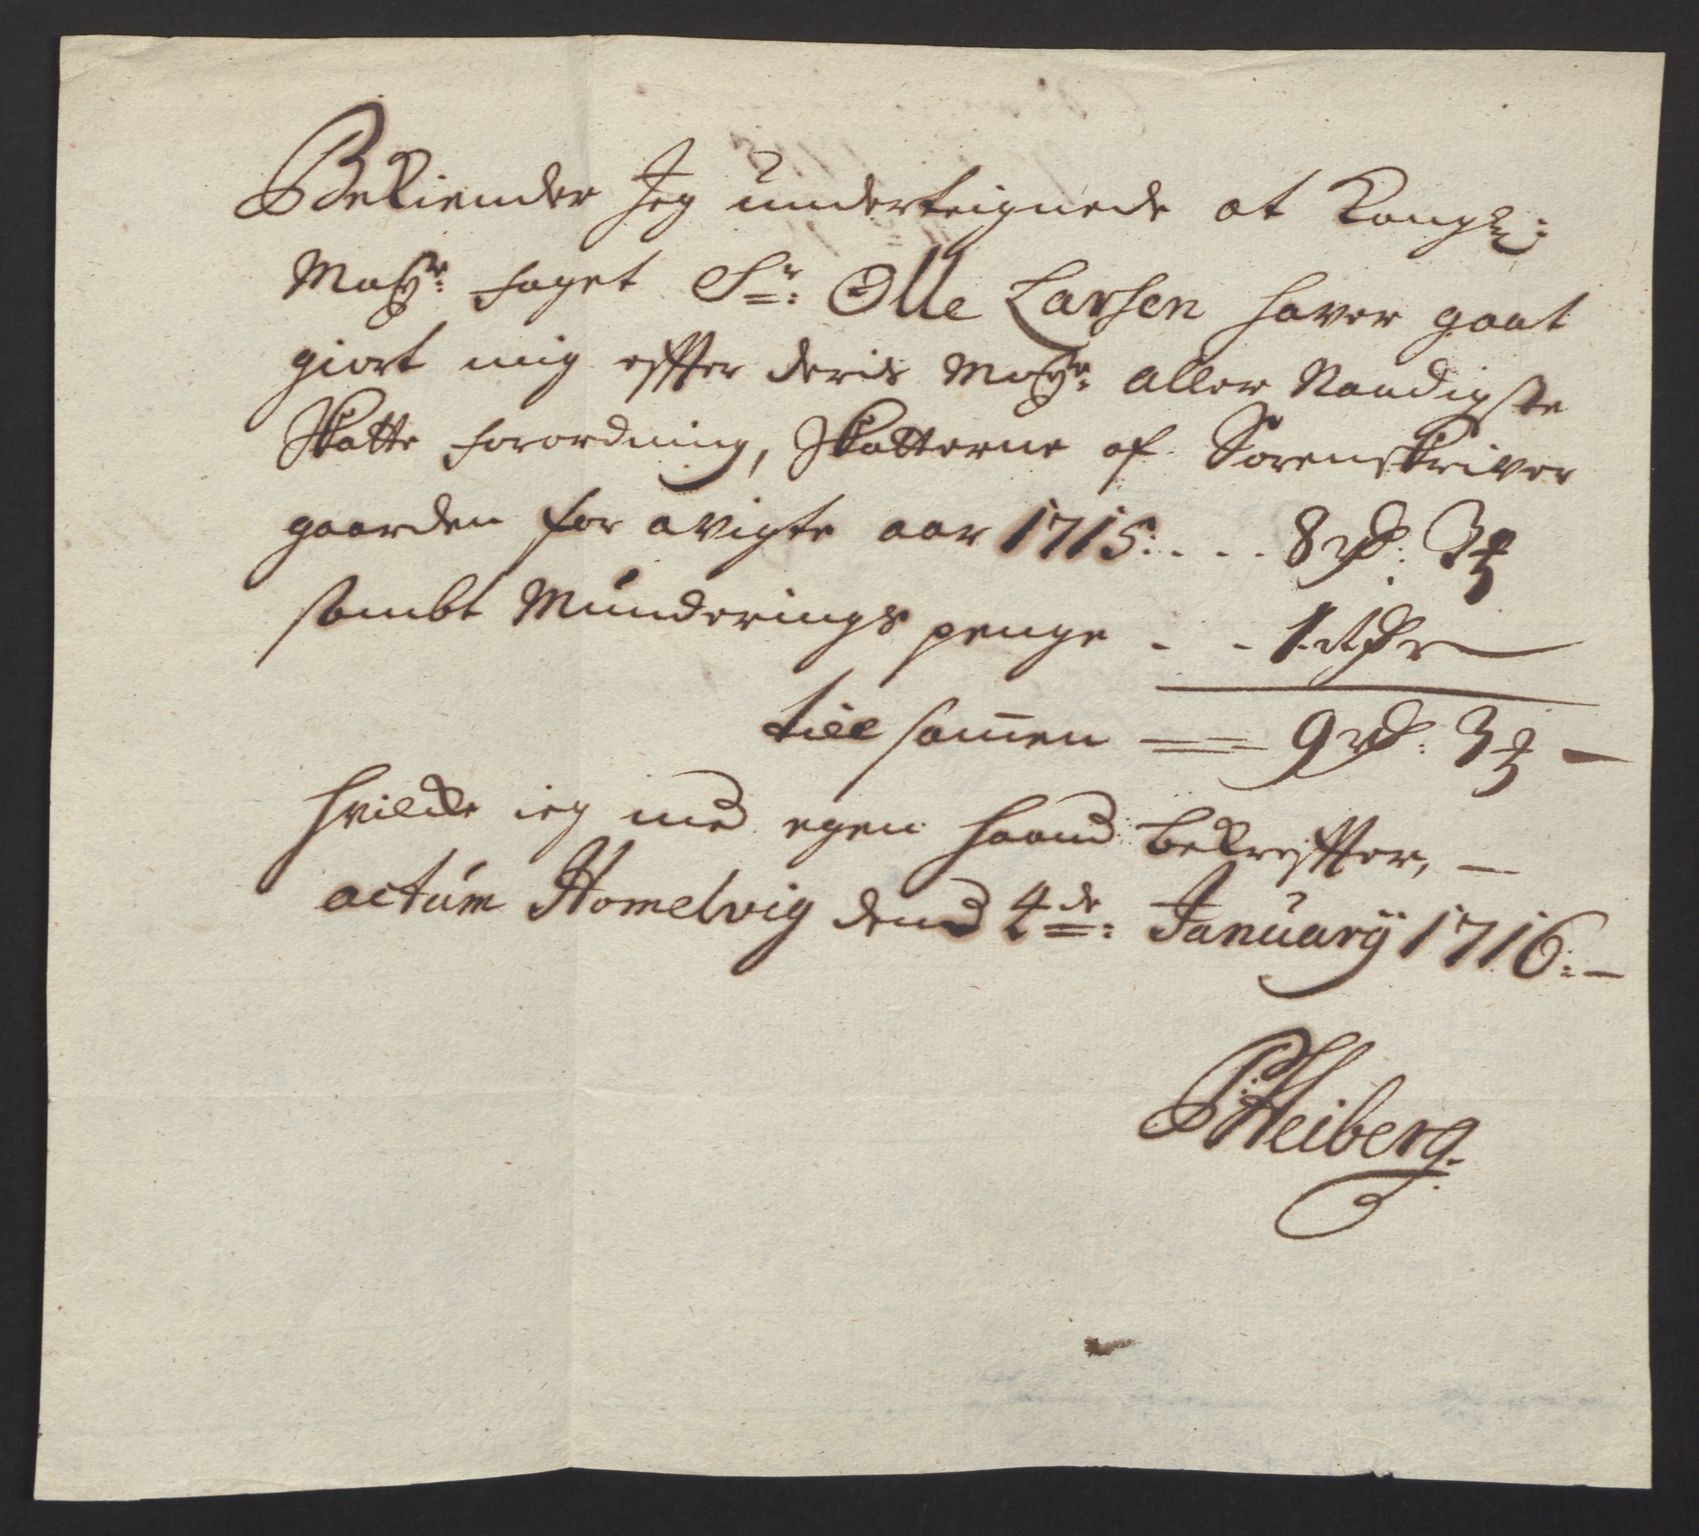 Bekiender Jeg underteignede at Kongl:
Maÿts: foget Sr: Olle Larsen haver gaat
giort mig effter deris Maÿts: aller Naadigste
Skatte forordning, Skatterne af Sorenskriver
gaarden for avigte aar 1715: . . . 8 rd: 3 ß
sambt Munderings penge . . 1 rdr
till samen == 9 rd: 3 ß —
hvilcke ieg med egen haand bekreffter, —
actum Homelvig dend 4de: Januarij 1716: —
PHeiberg.